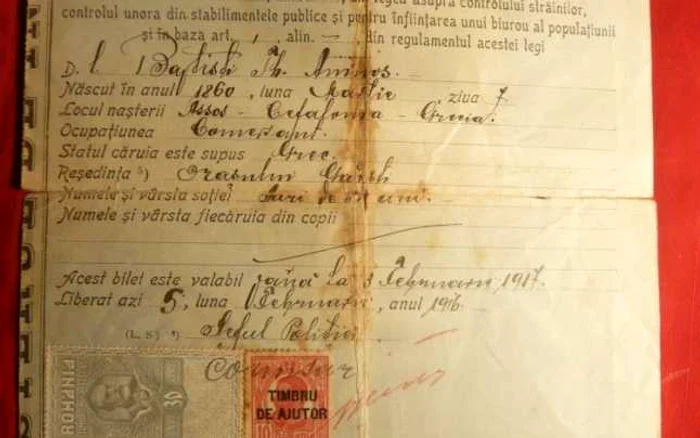 legea asupra controlului străinilor,
controlul unora din stabilimentele publice și pentru înființarea unui birou al populațiunii
și in baza art. , alin. — , din regulamentul acestei legi
D. l
Născut în anul 1860, luna Martie ziua 7
Locul nașterii Assos - Cefalonia - Grecia.
Ocupațiunea Comersant.
Statul căruia este supus Grec.
Reședința Orașului
Numele și vârsta soției de ani.
Numele și vârsta fiecăruia din copii
Acest bilet este valabil până la 3 Februarie 1917.
Liberat azi 5, luna Februarie, anul 1916.
(L. S.) Șeful Poliției
Comisar
ROMANIA
30
TIMBRU
DE AJUTOR
10